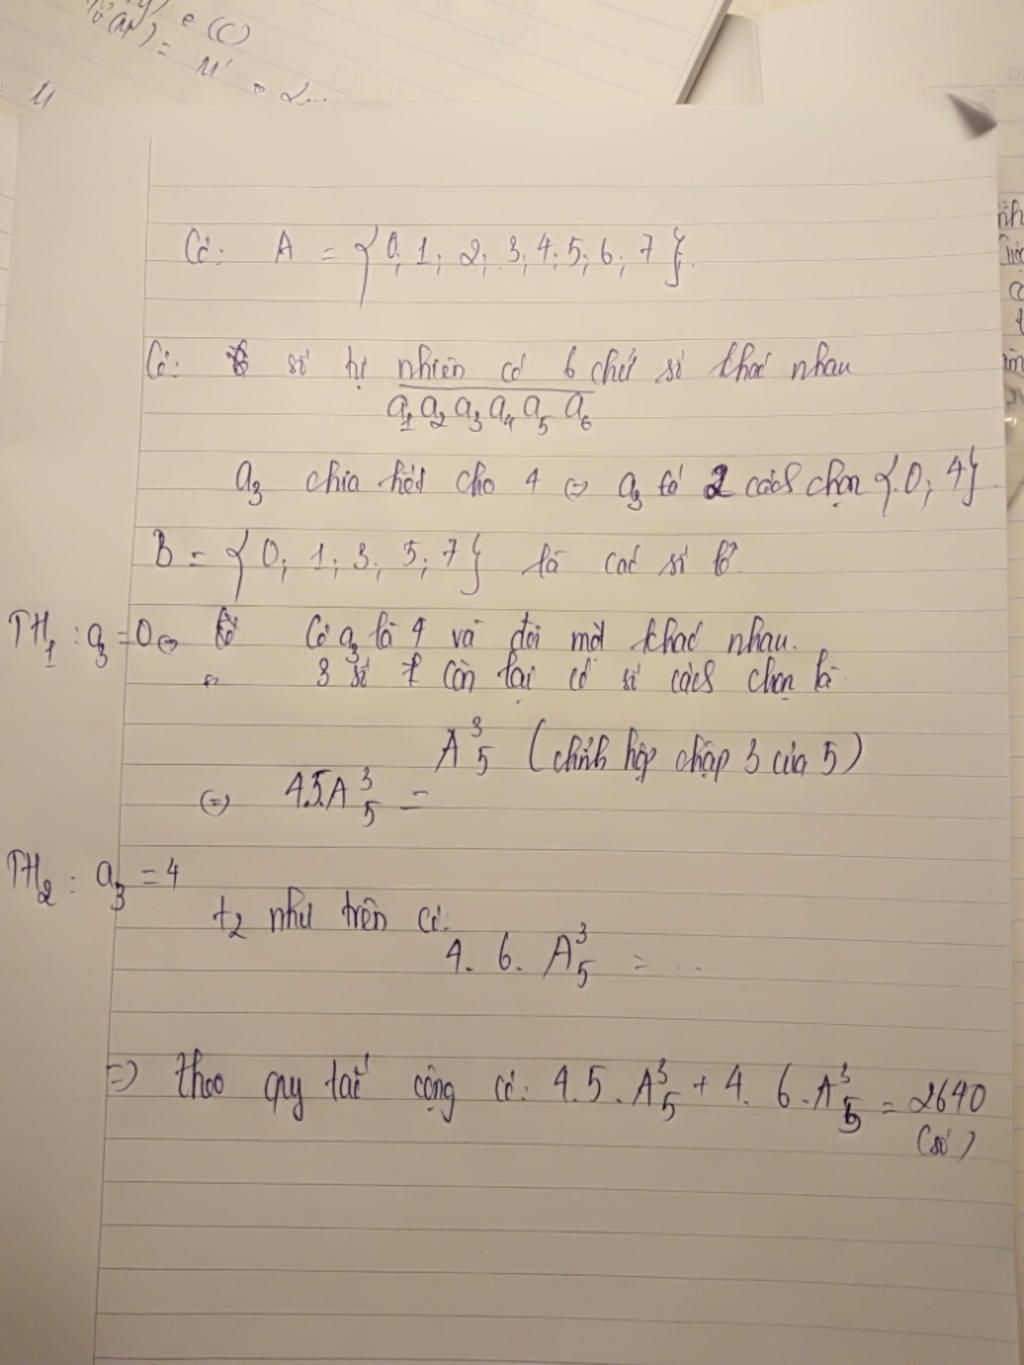 e (C)
M' =
M
Có: A = {0; 1; 2; 3; 4; 5; 6; 7}.
Có: số tự nhiên có 6 chữ số khác nhau
a1 a2 a3 a4 a5 a6
a3 chia hết cho 4 ⇔ a3 có 2 cách chọn {0; 4}
B = {0; 1; 3; 5; 7} là các số lẻ.
TH1 : a3 = 0 ⇔ Có a3 là 4 và đôi một khác nhau.
3 số còn lại có số cách chọn là
A³₅ (chỉnh hợp chập 3 của 5)
⇔ 4.5.A³₅ =
TH2 : a3 = 4
t2 như trên có:
4. 6. A³₅ = ...
⇒ theo quy tắc cộng có: 4.5.A³₅ + 4. 6.A³₅ = 2640
(số)